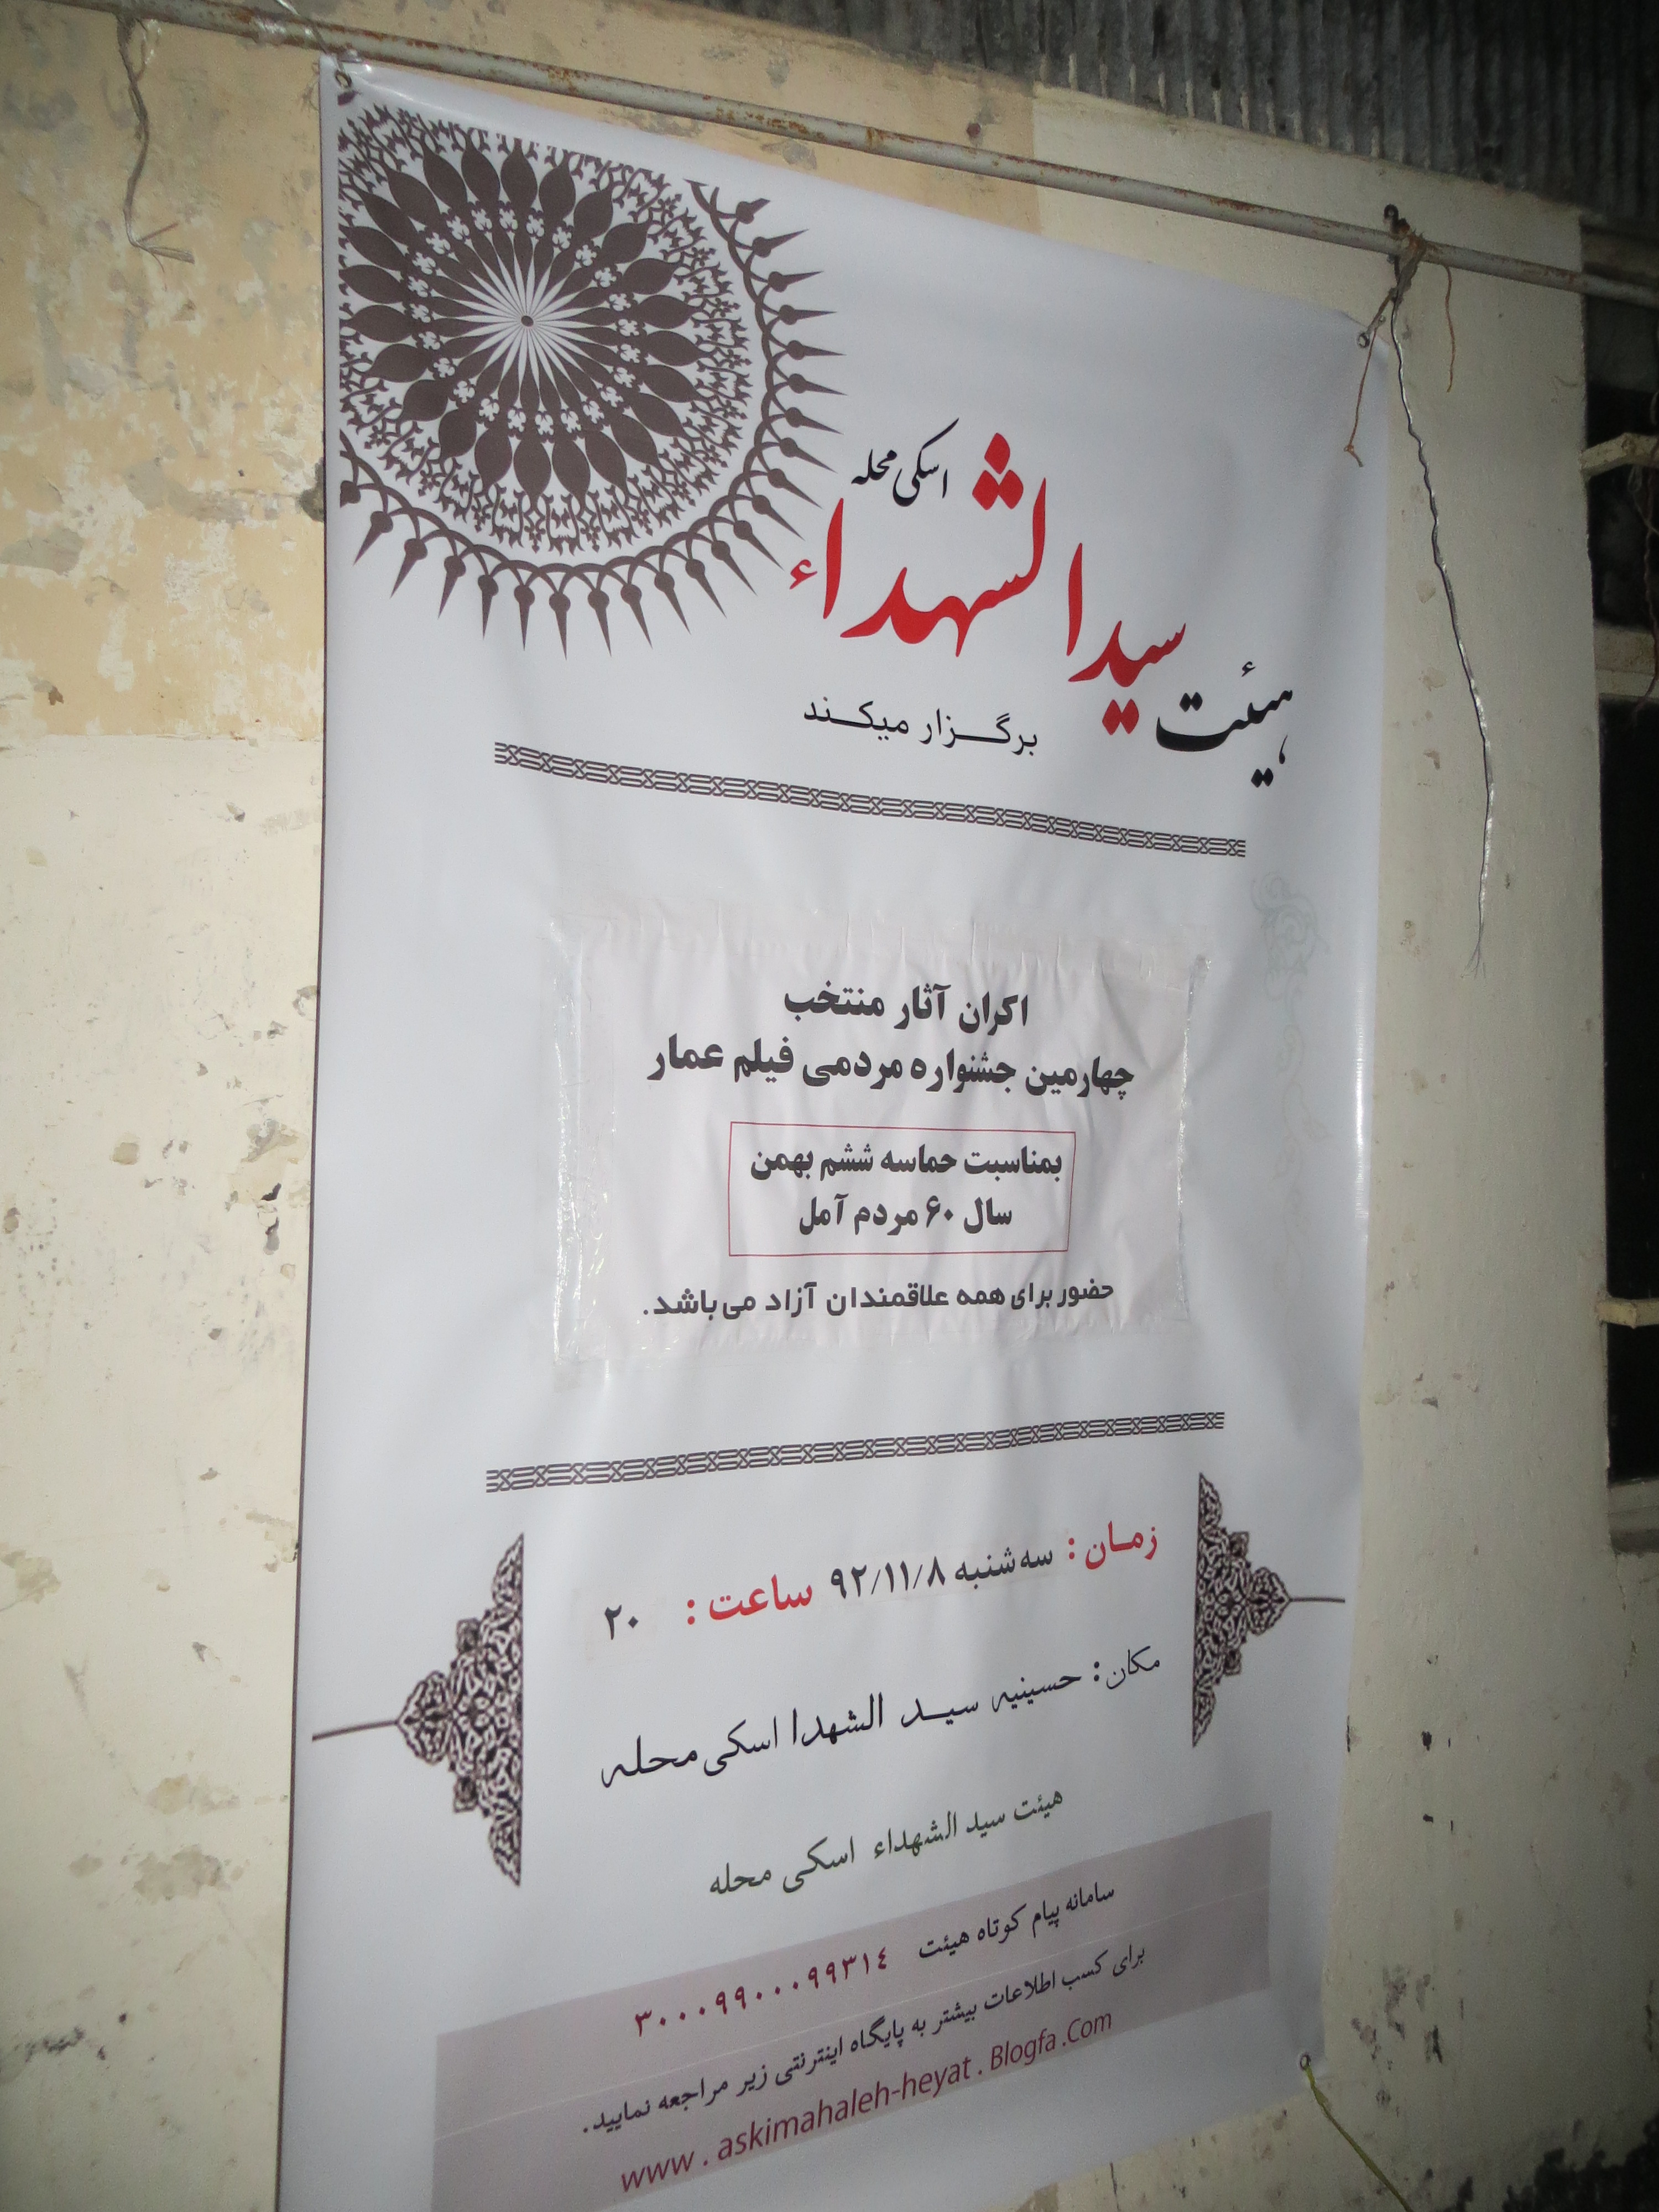 هیئت سیدالشهداء اسکی محله
برگزار میکند
اکران آثار منتخب
چهارمین جشنواره مردمی فیلم عمار
بمناسبت حماسه ششم بهمن
سال ۶۰ مردم آمل
حضور برای همه علاقمندان آزاد می‌باشد.
زمان : سه شنبه ۹۲/۱۱/۸ ساعت : ۲۰
مکان : حسینیه سید الشهدا اسکی محله
هیئت سید الشهداء اسکی محله
سامانه پیام کوتاه هیئت ۳۰۰۰۹۹۰۰۰۹۹۳۱٤
برای کسب اطلاعات بیشتر به پایگاه اینترنتی زیر مراجعه نمایید.
www . askimahaleh-heyat . Blogfa .Com